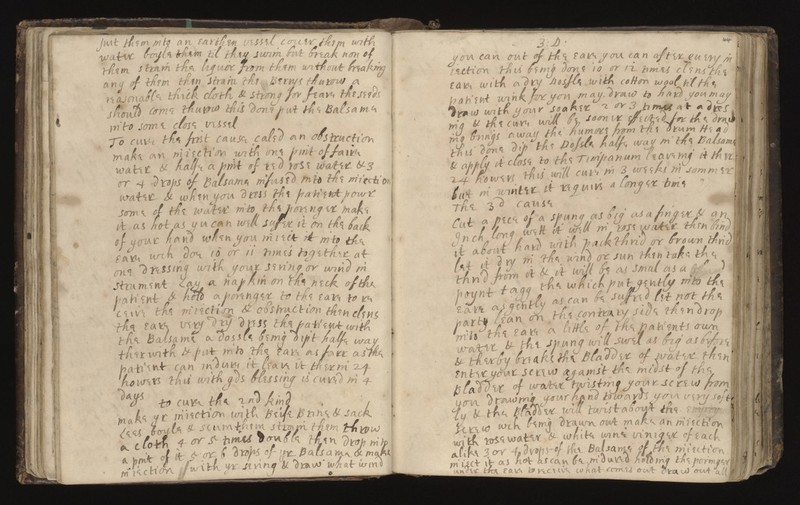 put them into an earthen vessel cover them with
water boyle them til they swim but break non of
them strain the liquor from them without breaking
any of them then strain the Berrys throw a
reasonable thick cloth & strong for fear the seeds
should come throw this don put the Balsame
into some close vessel
To cure the first cause caled an obstruction
make an iniection with one pint of faire
water & halfe a pint of red rose water & 3
or 4 drops of Balsame infused into the iniection
water & when you dress the patient powr
some of the water into the porenger make
it as hot as yu can well sufer it on the back
of your hand when you iniect it into the
eare wch doe 10 or 11 times together at
one dressing with your sering or wind in
strument Lay a napkin on the neck of the
patient & hold a porenger to the eare to re
ceive the iniection & obstruction then clens
the eare very dry dress the patient with
the Balsame a dossle being dipt halfe way
therwith & put into the eare as farr as the
patient can indure it leave it therin 24
howers this with gds blessing is cured in 4
days
to cure the 2nd kind
make yr iniection with Beife Brine & sack
Lees boyle & scum them strain them throw
a cloth 4 or 5 times double then drop into
a pint of it 5 or 6 drops of yr Balsame & make
iniection with yr sering & draw what wind
3: D:
you can out of the eare you can after every in
iection this being done 10 or 12 times clens the
eare with a dry Dossle with cotton wool til the
patient wink for you may draw to hard you may
draw with your soaker 2 or 3 times at a dres
ing & the cure will be sooner efected for the draw
ing brings away the humors from the drum Head
this done dip the Dossle halfe way in the Balsame
& apply it close to the Timpanum leaveing it there
24 howers this will cure in 3 weeks in sommer
but in winter it requirs a longer time
The 3d cause
Cut a pece of a spung as big as a finger & an
Inch long wett it well in rose water then bind
it about hard with packthrid or brown thrid
let it dry in the wind or sun then take the
thrid from it & it will be as smal as a
poynt tagg the which put gently into the
eare as gently as can be sufred let not the
party lean on the contrary side then drop
into the eare a little of the patients own
water & the spung will swel as big as before
& therby breake the Bladder of water then
enter your screw against the midst of the
Bladder of water twisting your screw from
you drawing your hand towards you very soft
ly & the Bladder will twist about the
screw wch being drawn out make an iniection
with rose water & white wine viniger of each
alike 3 or 4 drops of the Balsame of the iniection
iniect it as hot as can be indured holding the porenger
under the eare to receive what comes out draw out all